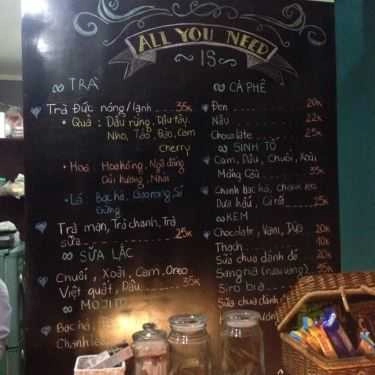 ALL YOU NEED
IS
TRÀ
Trà Đức nóng/lạnh 35K
Quả : Dâu rừng, Dâu tây
Nho, Táo, Đào, Cam
Cherry
Hoa : Hoa hồng, Ngũ đông
Oải hương, Nhài
Lá : Bạc hà,
Gừng
Trà mạn, Trà chanh, Trà
sữa 25K
SỮA LẮC
Chuối, Xoài, Cam, Oreo
Việt quất, Dâu 35K
MOJITO
Bạc hà,
Chanh
CÀ PHÊ
Đen 20K
Nâu 22K
Chocolate 25K
SINH TỐ
Cam, Dâu, Chuối, Xoài
Mãng Cầu 35K
Chanh bạc hà, Chanh leo
Dưa hấu, Cà rốt 25K
KEM
Chocolate, Vani, Dừa 20K
Thạch 10K
Sữa chua đánh đá 20K
25K
Siro
Sữa chua đánh